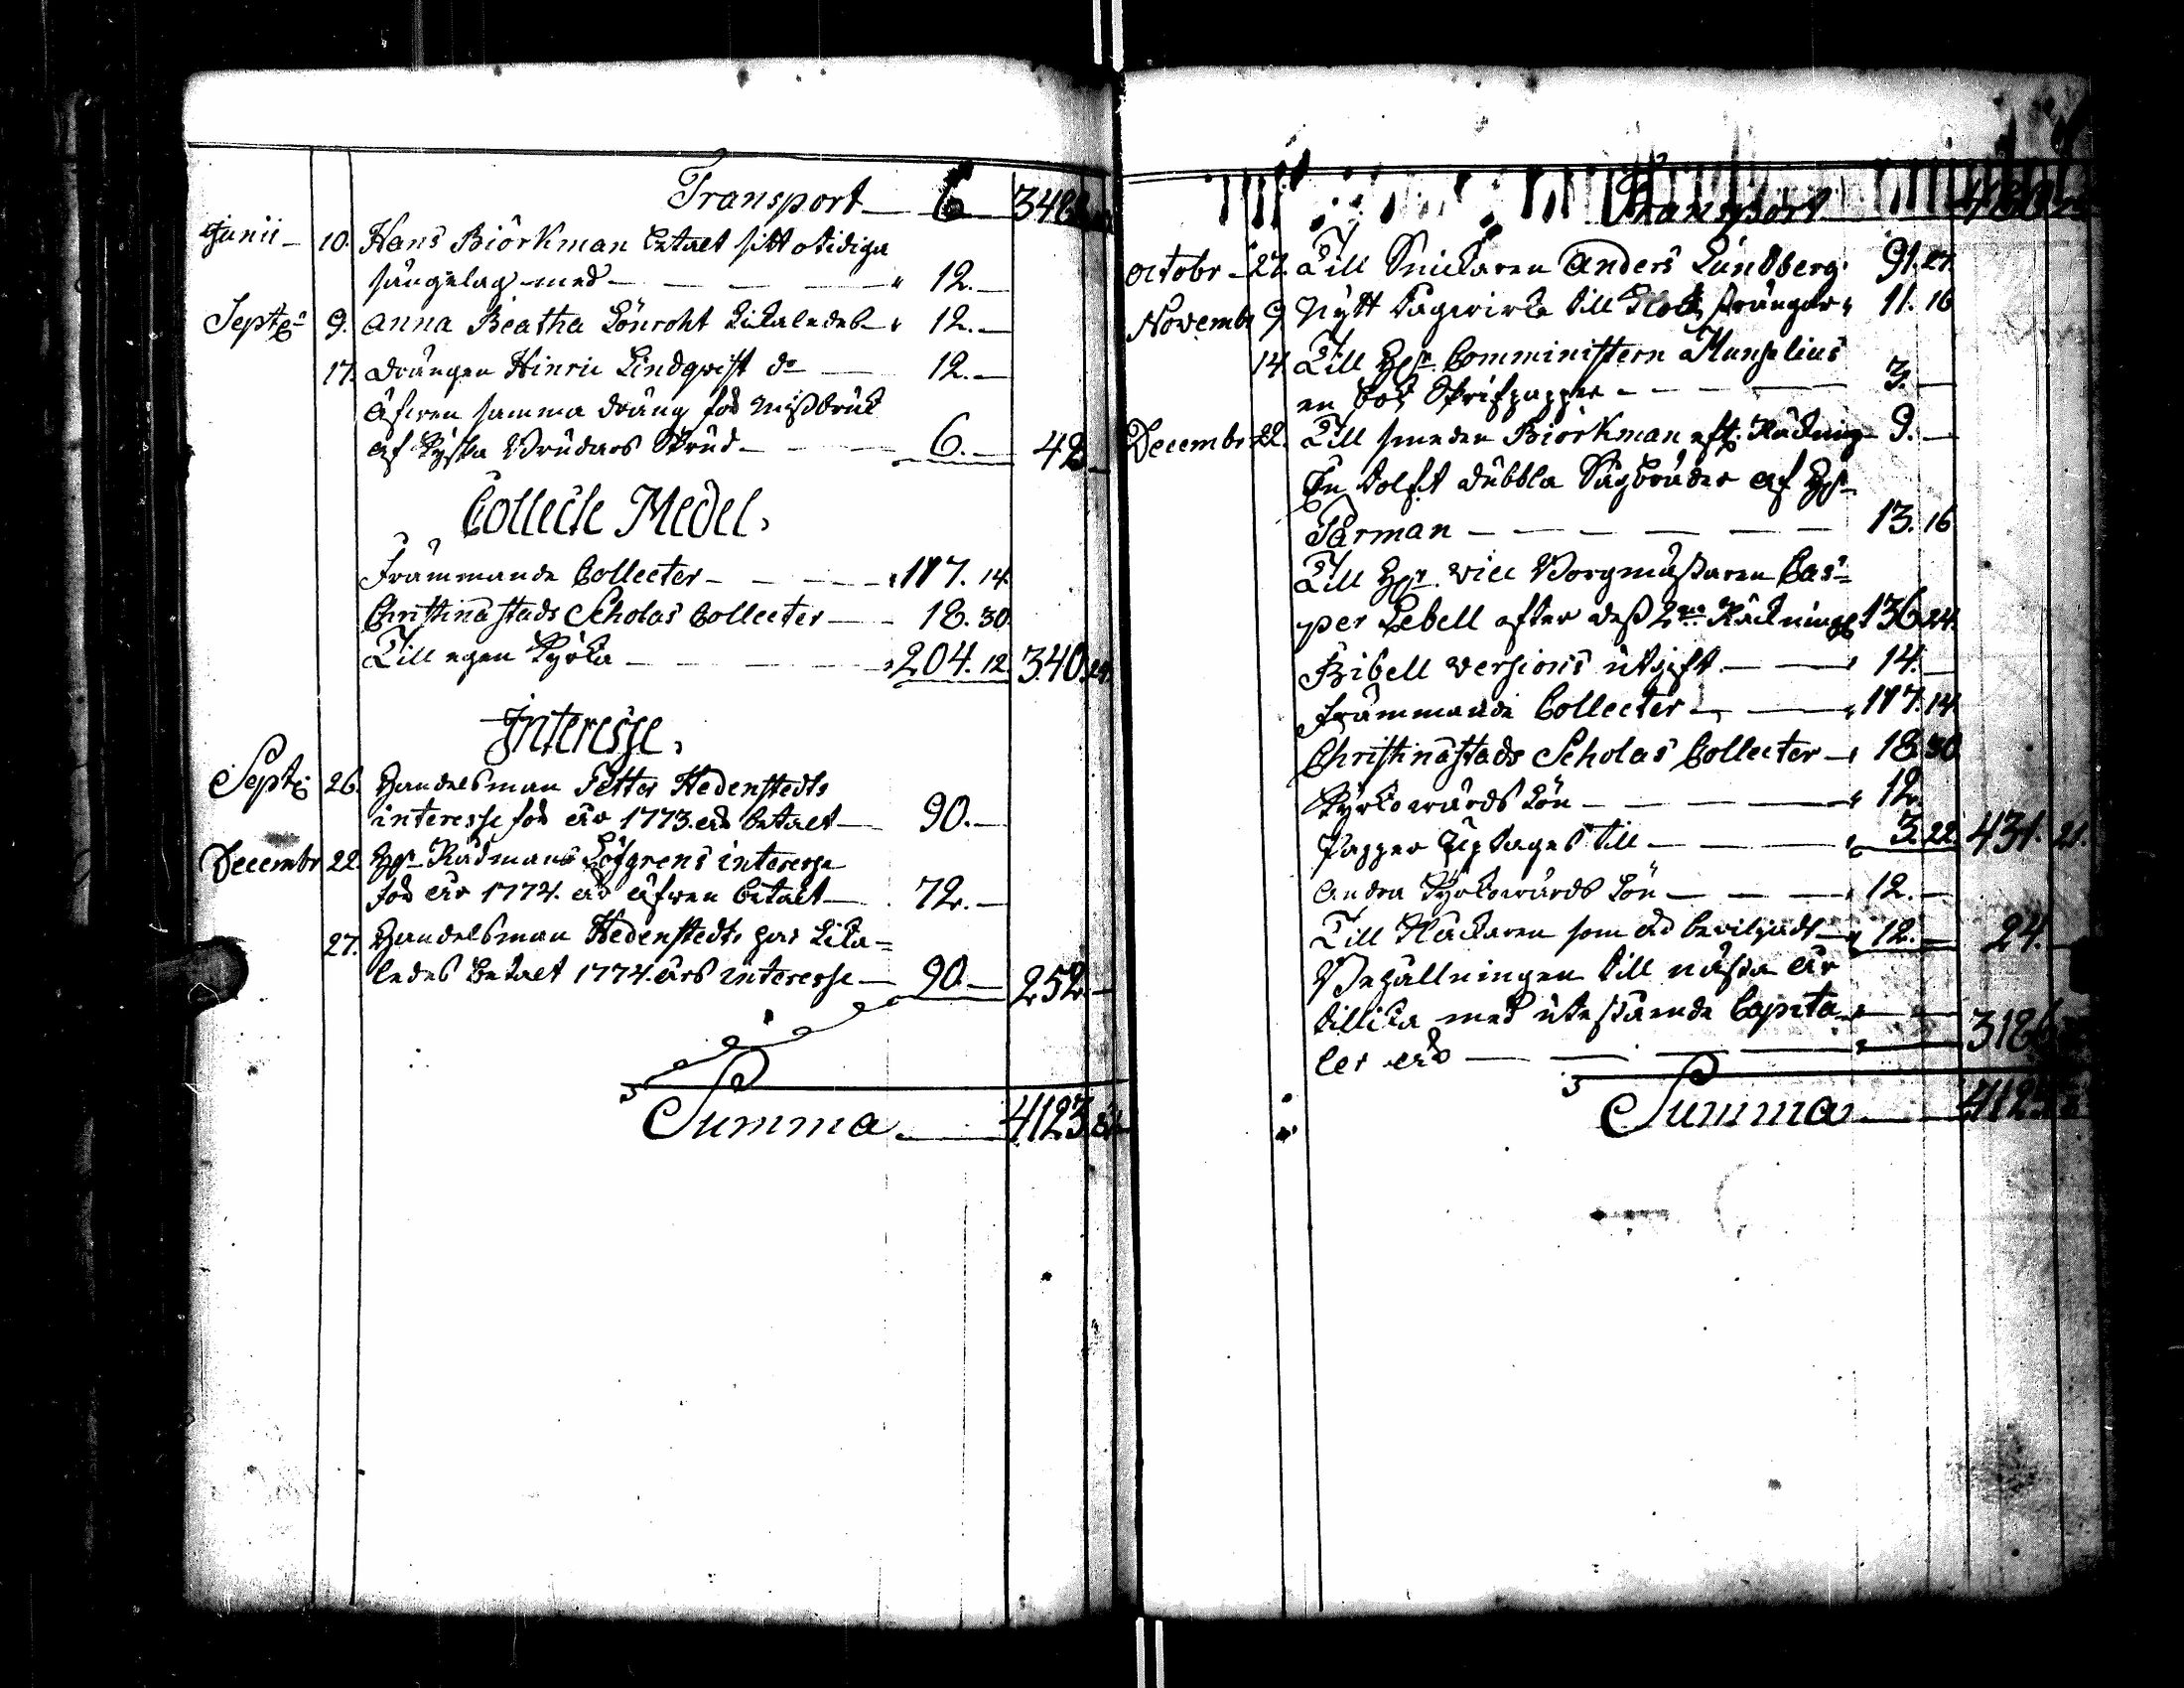 Transport — 6 348
Junii — 10. Hans Biörkman betalt sitt otidiga
sängelag med — 12. —
Septr 9. Anna Beatha Lönroht likaledes 12. —
17. Drängen Hinric Lindqvist do — 12. —
Äfwen samma dräng för missbruk
af Kyrko Brudars Skrud — 6. — 42 —
Collecte Medel.
Främmande Collecter — 117. 14.
Christinæstads Scholas Collecter — 18. 30.
Till egen Kyrka — 204. 12. 340. 24.
Interesse.
Septr 26. Handelsman Petter Hedenstedts
interesse för år 1773. är betalt — 90. —
Decembr 22. Hr Rådmans Löfgrens interesse
för år 1774. är äfwen betalt — 72. —
27. Handelsman Hedenstedts har lika-
ledes betalt 1774. års interesse — 90. — 252. —
Summa — 4123.
Transport
Octobr — 27. Till Snickaren Anders Lundberg. 91. 27.
Novembr 9. Nytt tagwirke till Klock stränger 11. 16
14. Till Hr Comministern Munselius
en bok Skrifpapper — 3. —
Decembr 22. Till smeden Biörkman eft. Räkning 9. —
En tolft dubbla Sågbräder af Hr
Parman — 13. 16
Till Hr vice Borgmästaren Cas-
per Lebell efter dess 2ne Räkningr 136. 24.
Bibell versions utgift — 14. —
främmande Collecter — 117. 14.
Christinæstads Scholas Collecter — 18. 30
Kyrkowärds Lön — 12.
Papper uptages till — 3. 22. 431. 21.
Andra Kyrkowärds Lön — 12. —
Till Klockaren som är beviljadt — 12. — 24. —
Behållningen till nästa år
tillika med utestående Capita-
ler är — 3186
Summa — 4123